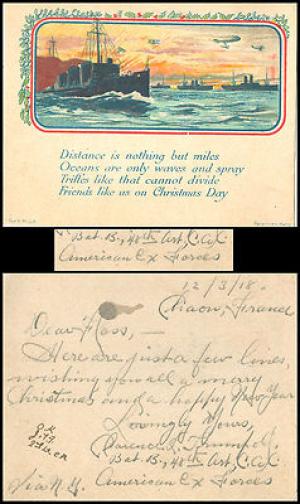 Distance is nothing but miles
Oceans are only waves and spray
Trifles like that cannot divide
Friends like us on Christmas Day
Bat. B., 40th Art, C.A.C.
American Ex Forces
12/3/18.
France
Dear Floss, —
Here are just a few lines,
wishing you all a merry
Christmas and a happy New Year
Lovingly Yours,
Clarence
Bat. B., 40th Art, C.A.C
American Ex Forces
O.K.
Via N.Y.